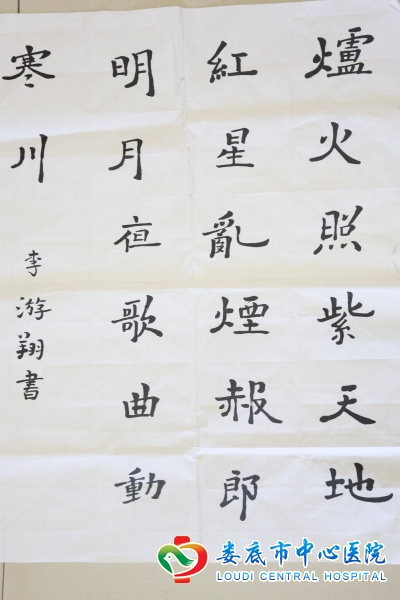 爐火照紫天地
紅星亂煙赧郎
明月夜歌曲動
寒川
李游翔書
娄底市中心医院
LOUDI CENTRAL HOSPITAL